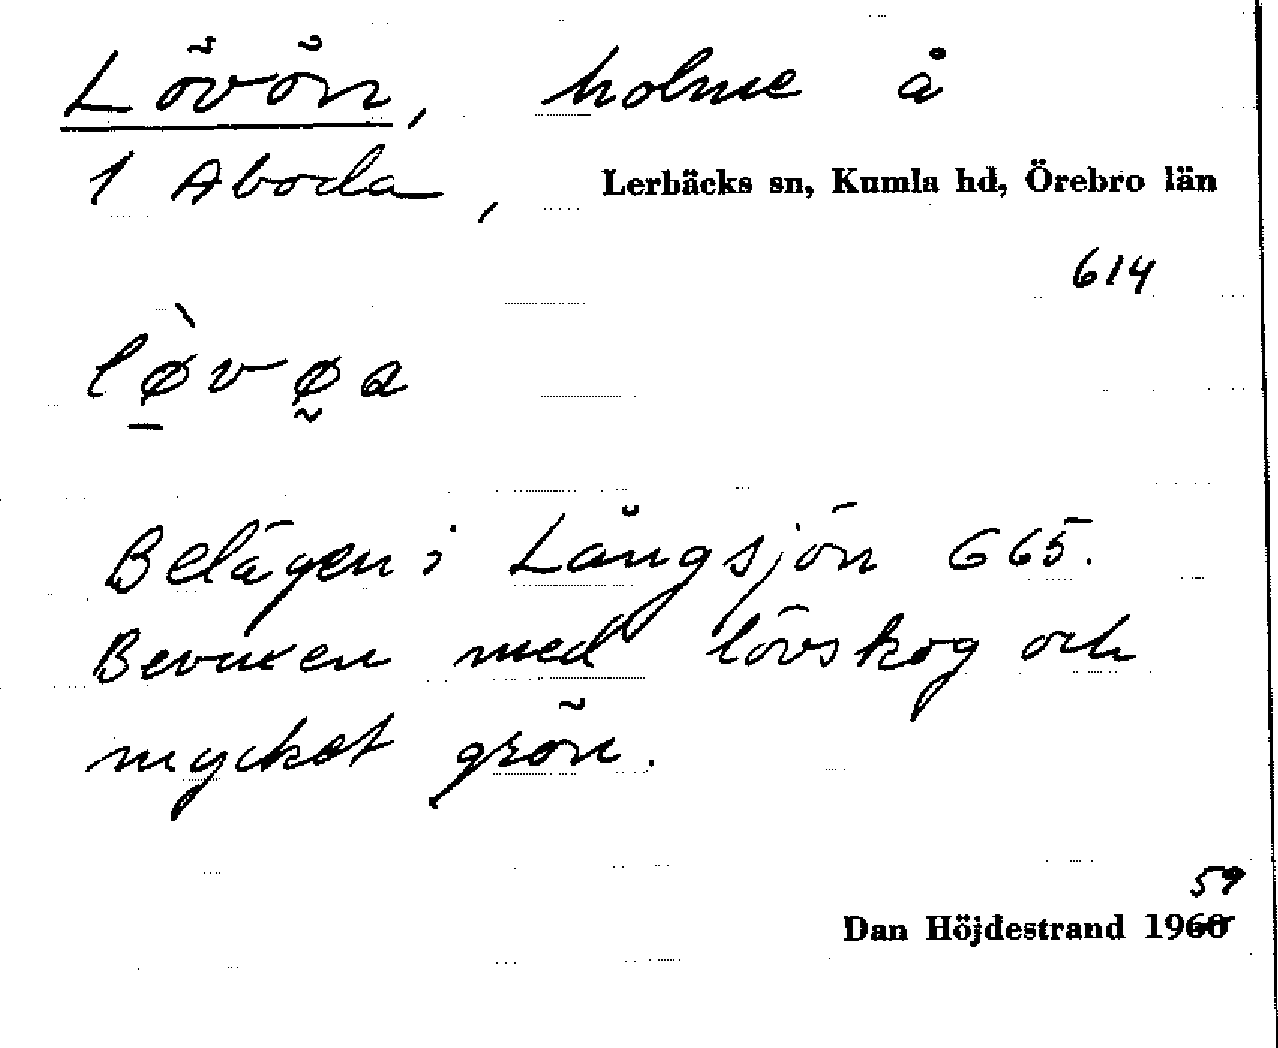 Lövön, holme å
1 Aboda, Lerbäcks sn, Kumla hd, Örebro län
614
lø̀vøa
Belägen i Långsjön 665.
Bevuxen med lövskog och
mycket grön.
59
Dan Höjdestrand 1960